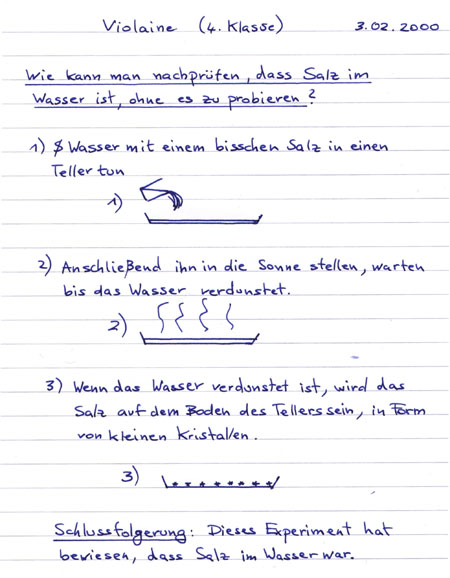 Violaine (4. Klasse) 3.02.2000
Wie kann man nachprüfen, dass Salz im
Wasser ist, ohne es zu probieren?
1) $ Wasser mit einem bisschen Salz in einen
Teller tun
1)
2) Anschließend ihn in die Sonne stellen, warten
bis das Wasser verdunstet.
2)
3) Wenn das Wasser verdunstet ist, wird das
Salz auf dem Boden des Tellers sein, in Form
von kleinen Kristallen.
3)
Schlussfolgerung: Dieses Experiment hat
bewiesen, dass Salz im Wasser war.